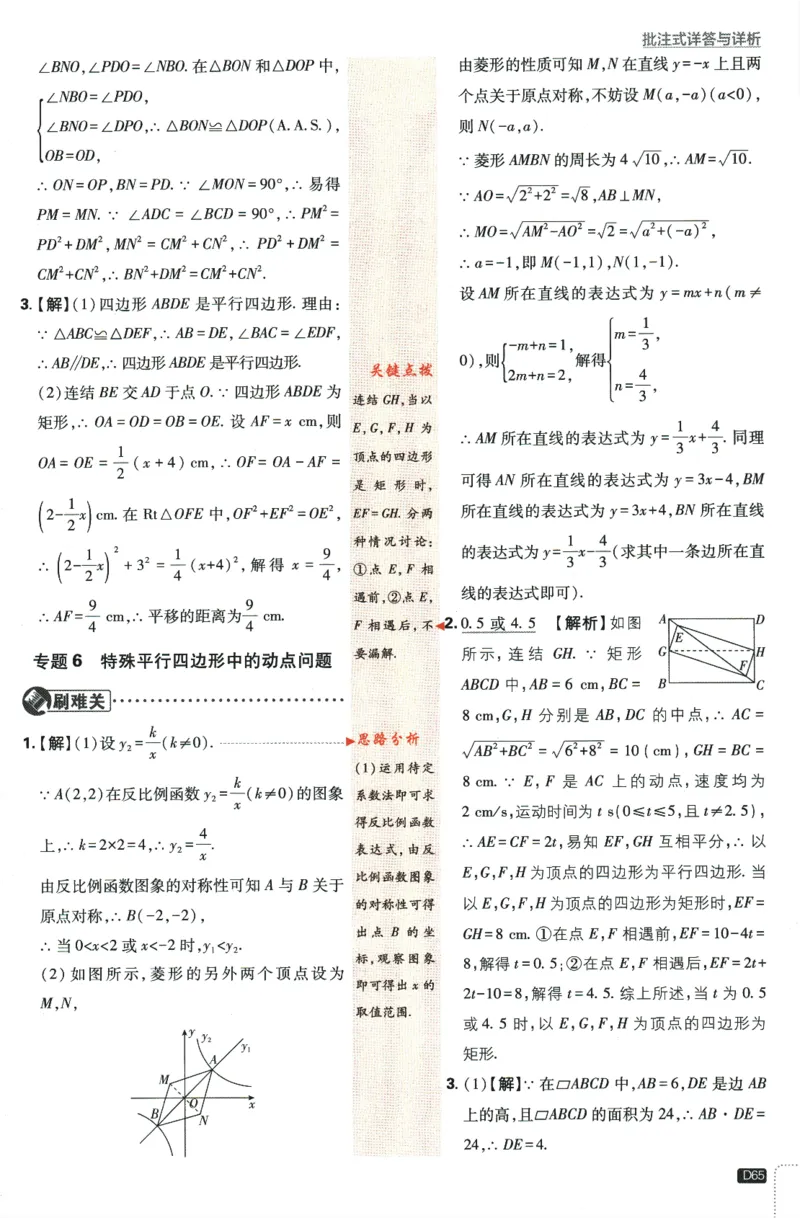 批注式详答与详析
∠BNO,∠PDO=∠NBO. 在△BON 和△DOP 中,
∠NBO=∠PDO,
∠BNO=∠DPO,∴ △BON≌△DOP(A.A.S.),
OB=OD,
∴ ON=OP,BN=PD. ∵ ∠MON=90°,∴ 易得
PM=MN. ∵ ∠ADC=∠BCD=90°,∴ PM²=
PD²+DM²,MN²=CM²+CN²,∴ PD²+DM²=
CM²+CN²,∴ BN²+DM²=CM²+CN².
3.【解】(1)四边形 ABDE 是平行四边形. 理由:
∵ △ABC≌△DEF,∴ AB=DE,∠BAC=∠EDF,
∴ AB∥DE,∴ 四边形 ABDE 是平行四边形.
(2)连结 BE 交 AD 于点 O. ∵ 四边形 ABDE 为
矩形,∴ OA=OD=OB=OE. 设 AF=x cm,则
OA=OE=1/2(x+4) cm,∴ OF=OA-AF=
(2-1/2x) cm. 在 Rt△OFE 中,OF²+EF²=OE²,
∴ (2-1/2x)²+3²=1/4(x+4)²,解得 x=9/4,
∴ AF=9/4 cm,∴ 平移的距离为 9/4 cm.
专题6 特殊平行四边形中的动点问题
刷难关
1.【解】(1)设 y₂=k/x(k≠0).
∵ A(2,2)在反比例函数 y₂=k/x(k≠0)的图象
上,∴ k=2×2=4,∴ y₂=4/x.
由反比例函数图象的对称性可知 A 与 B 关于
原点对称,∴ B(-2,-2),
∴ 当 0<x<2 或 x<-2 时,y₁<y₂.
(2)如图所示,菱形的另外两个顶点设为
M,N,
y
y₂
y₁
A
M
O
x
B
N
关键点拨
连结 GH,当以
E,G,F,H 为
顶点的四边形
是矩形时,
EF=GH. 分两
种情况讨论:
①点 E,F 相
遇前,②点 E,
F 相遇后,不
要漏解.
思路分析
(1)运用待定
系数法即可求
得反比例函数
表达式,由反
比例函数图象
的对称性可得
出点 B 的坐
标,观察图象
即可得出 x 的
取值范围.
由菱形的性质可知 M,N 在直线 y=-x 上且两
个点关于原点对称,不妨设 M(a,-a)(a<0),
则 N(-a,a).
∵ 菱形 AMBN 的周长为 4√10,∴ AM=√10.
∵ AO=√(2²+2²)=√8,AB⊥MN,
∴ MO=√(AM²-AO²)=√2=√(a²+(-a)²),
∴ a=-1,即 M(-1,1),N(1,-1).
设 AM 所在直线的表达式为 y=mx+n(m≠
0),则{-m+n=1, 2m+n=2, 解得{m=1/3, n=4/3,
∴ AM 所在直线的表达式为 y=1/3x+4/3. 同理
可得 AN 所在直线的表达式为 y=3x-4,BM
所在直线的表达式为 y=3x+4,BN 所在直线
的表达式为 y=1/3x-4/3(求其中一条边所在直
线的表达式即可).
2. 0.5 或 4.5 【解析】如图
所示,连结 GH. ∵ 矩形
ABCD 中,AB=6 cm,BC=
A
D
E
G
H
F
B
C
8 cm,G,H 分别是 AB,DC 的中点,∴ AC=
√(AB²+BC²)=√(6²+8²)=10(cm),GH=BC=
8 cm. ∵ E,F 是 AC 上的动点,速度均为
2 cm/s,运动时间为 t s(0≤t≤5,且 t≠2.5),
∴ AE=CF=2t,易知 EF,GH 互相平分,∴ 以
E,G,F,H 为顶点的四边形为平行四边形. 当
以 E,G,F,H 为顶点的四边形为矩形时,EF=
GH=8 cm. ①在点 E,F 相遇前,EF=10-4t=
8,解得 t=0.5;②在点 E,F 相遇后,EF=2t+
2t-10=8,解得 t=4.5. 综上所述,当 t 为 0.5
或 4.5 时,以 E,G,F,H 为顶点的四边形为
矩形.
3. (1)【解】∵ 在▱ABCD 中,AB=6,DE 是边 AB
上的高,且▱ABCD 的面积为 24,∴ AB·DE=
24,∴ DE=4.
D65